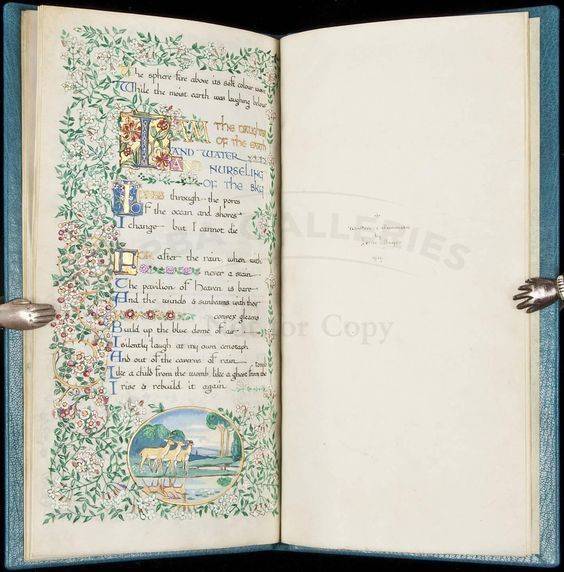 The sphere-fire above its soft colours wove
While the moist earth was laughing below
I AM THE DAUGHTER
OF THE EARTH
AND WATER
AND NURSELING
OF THE SKY
I PASS through the pores
Of the ocean and shores
I change but I cannot die
FOR after the rain when with
never a stain
The pavilion of Heaven is bare
And the winds & sunbeams with their
convex gleams
Build up the blue dome of air
I silently laugh at my own cenotaph
And out of the caverns of rain
Like a child from the womb, like a ghost from the tomb
I rise & rebuild it again
Written & illuminated
by
PBA GALLERIES
for Copy